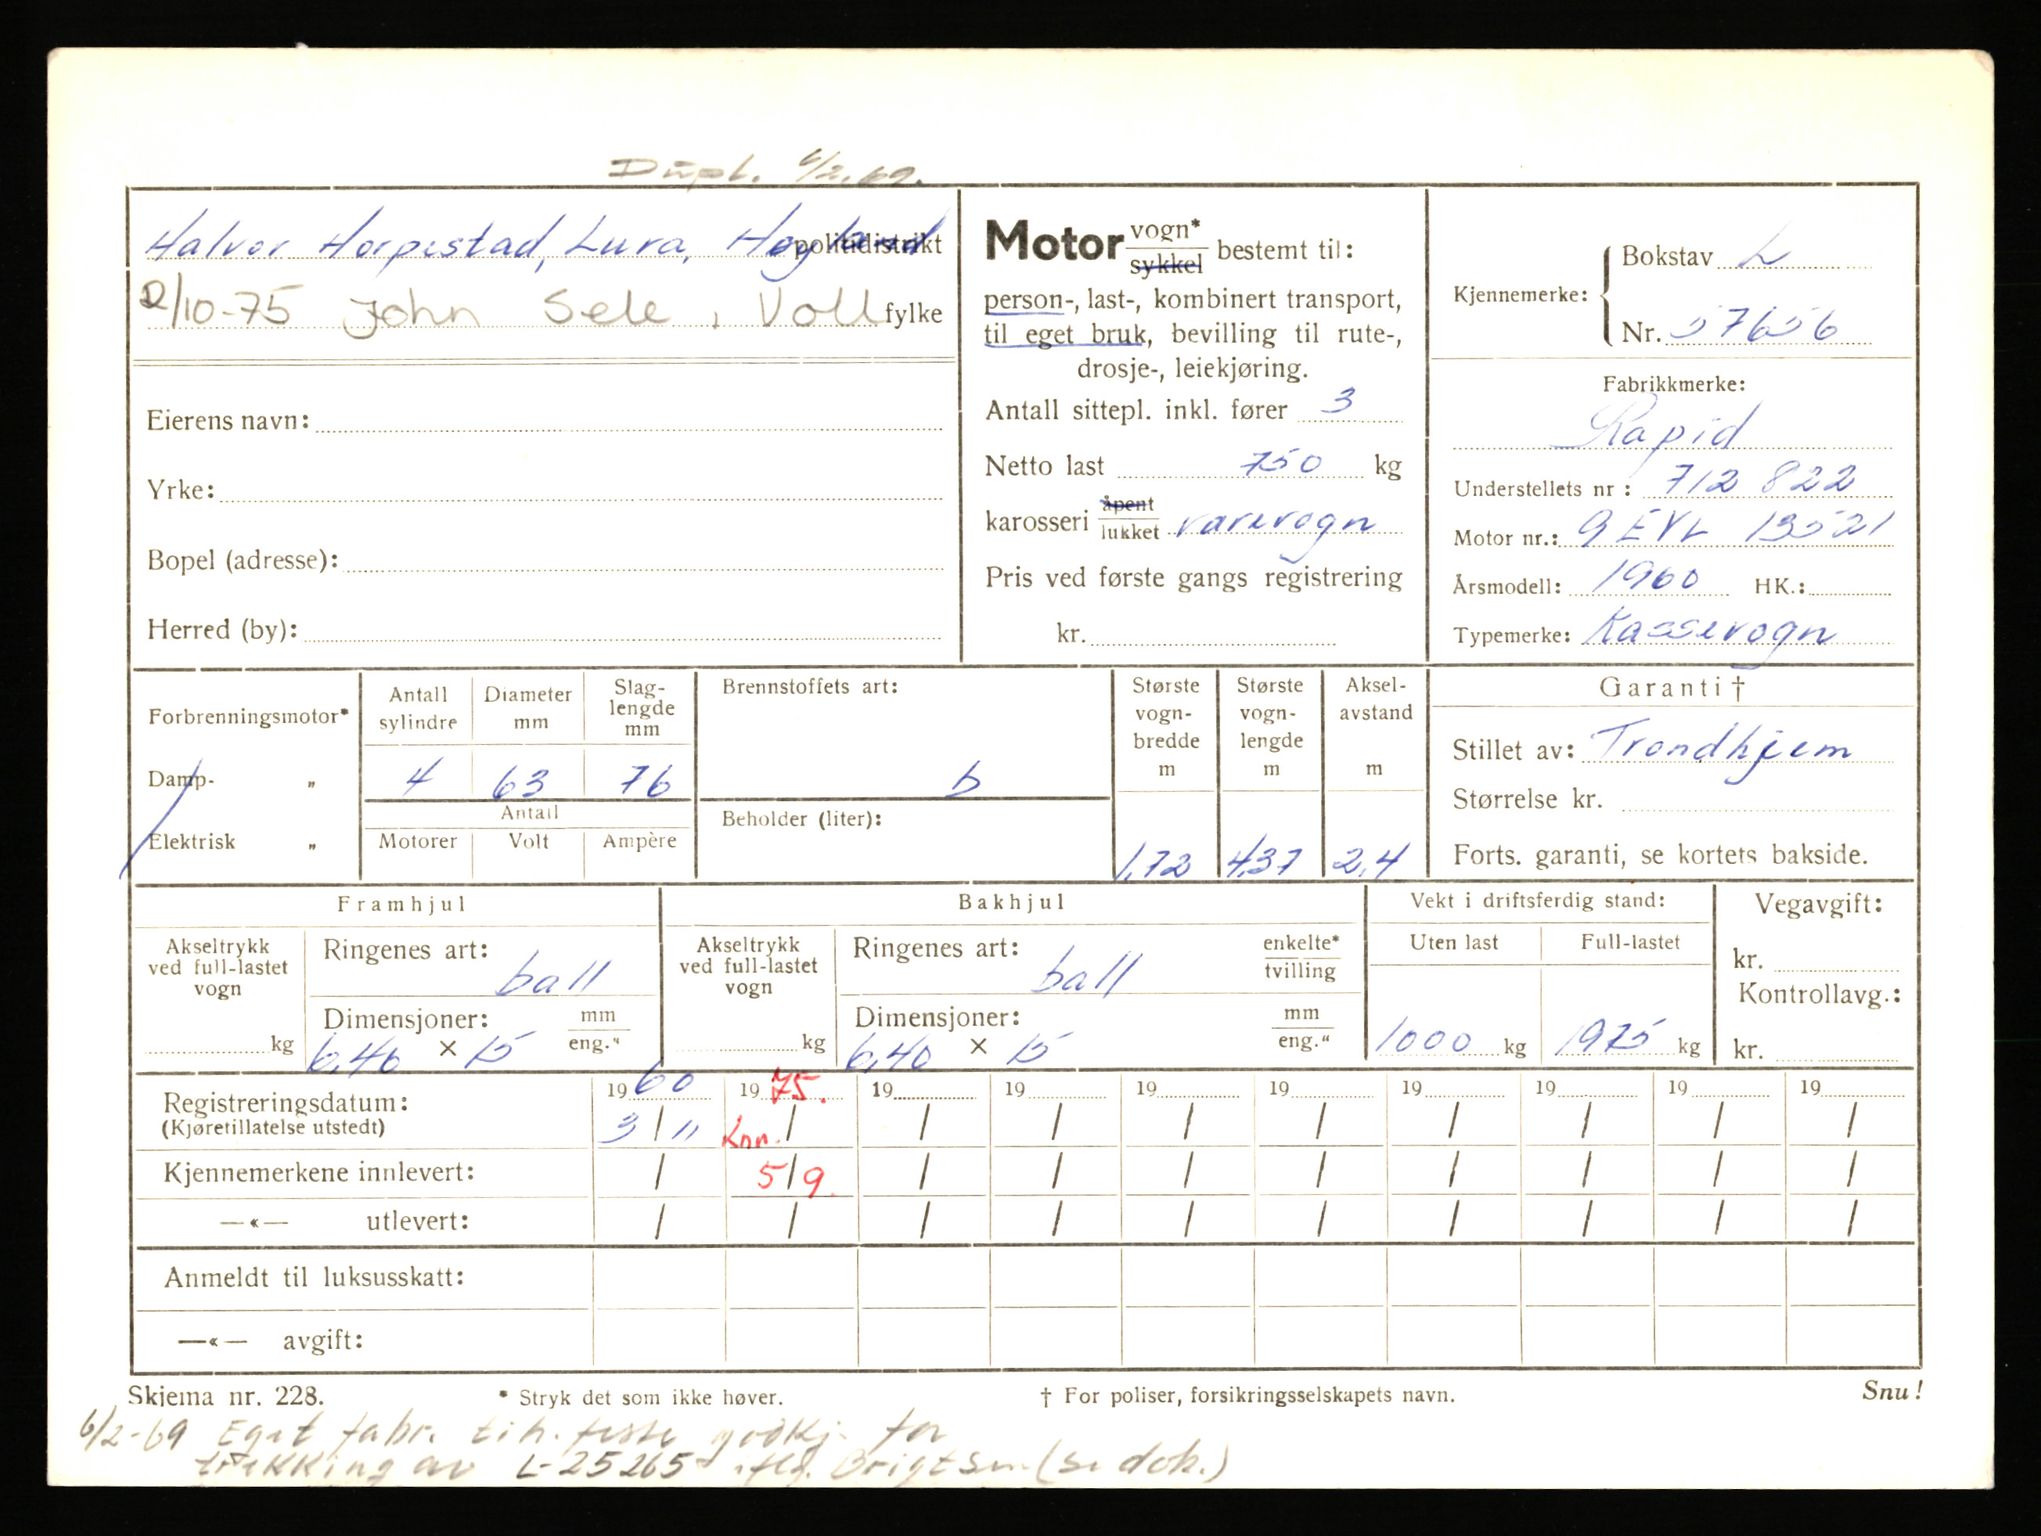 Dupl. 6/2.69.
Halvor Horpestad, Lura, Høyland politidistrikt
2/10-75 John Sele, Voll fylke
Eierens navn:
Yrke:
Bopel (adresse):
Herred (by):
Motor vogn* sykkel bestemt til:
person-, last-, kombinert transport,
til eget bruk, bevilling til rute-,
drosje-, leiekjøring.
Antall sittepl. inkl. fører 3
Netto last 750 kg
karosseri åpent lukket varevogn
Pris ved første gangs registrering
kr.
Kjennemerke: Bokstav L
Nr. 57656
Fabrikkmerke:
Rapid
Understellets nr: 712 822
Motor nr.: 9 EYL 13521
Årsmodell: 1960 HK.:
Typemerke: Kassevogn
Forbrenningsmotor*
Damp- „
Elektrisk „
Antall sylindre
Diameter mm
Slag-lengde mm
4 63 76
Antall
Motorer Volt Ampère
Brennstoffets art:
b
Beholder (liter):
Største vogn-bredde m
1,72
Største vogn-lengde m
4,37
Aksel-avstand m
2,4
Garanti †
Stillet av: Trondhjem
Størrelse kr.
Forts. garanti, se kortets bakside.
Framhjul
Akseltrykk ved full-lastet vogn
kg
Ringenes art:
ball
Dimensjoner: mm eng."
6,40 × 15
Bakhjul
Akseltrykk ved full-lastet vogn
kg
Ringenes art: enkelte* tvilling
ball
Dimensjoner: mm eng."
6,40 × 15
Vekt i driftsferdig stand:
Uten last Full-lastet
1000 kg 1975 kg
Vegavgift:
kr.
Kontrollavg.:
kr.
19 60 19 75. 19 19 19 19 19 19 19 19
Registreringsdatum: 3 / 11 Knn. / / / / / / / / /
(Kjøretillatelse utstedt)
Kjennemerkene innlevert: / 5/9. / / / / / / / /
—«— utlevert: / / / / / / / / / /
Anmeldt til luksusskatt:
—«— avgift:
Skjema nr. 228. * Stryk det som ikke høver. † For poliser, forsikringsselskapets navn. Snu!
6/2-69 Eget fabr. tilh. feste godkj. for
trekking av L-25265 iflg. Brigtsen (se dok.)